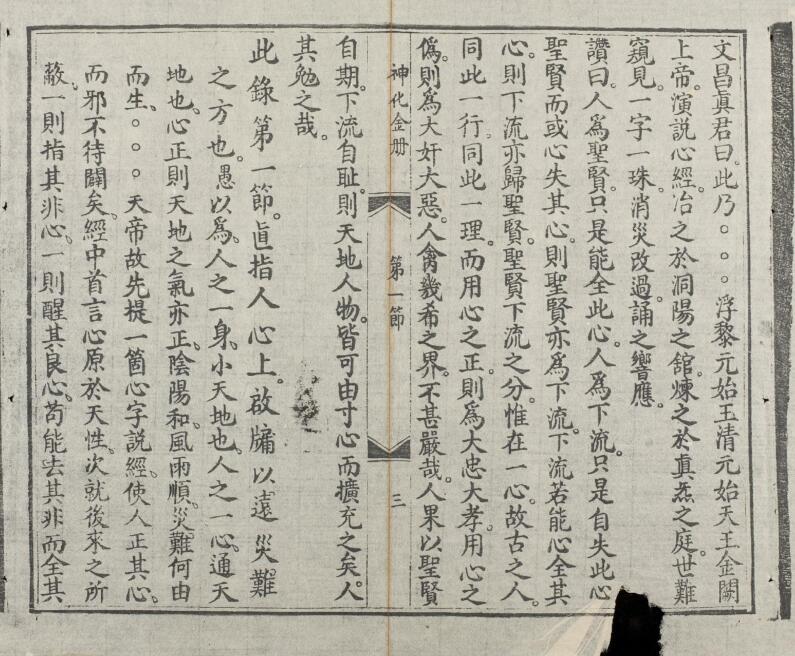 文昌眞君曰。此乃○○○浮黎元始王清元始天王金闕
上帝。演說心經。冶之於洞陽之舘。煉之於眞炁之庭。世難
窺見。一字一珠。消災改過。誦之響應。
讚曰。人爲聖賢。只是能全此心。人爲下流。只是自失此心
聖賢而或心失其心。則聖賢亦爲下流。下流若能心全其
心。則下流亦歸聖賢。聖賢下流之分。惟在一心。故古之人。
同此一行。同此一理。而用心之正。則爲大忠大孝。用心之
僞。則爲大奸大惡。人禽幾希之界。不甚嚴哉。人果以聖賢
神化金册 第一節 三
自期。下流自耻。則天地人物。皆可由寸心而擴充之矣。人
其勉之哉。
此錄第一節。直指人心上。啟牖以遠災難
之方也。愚以爲。人之一身。小天地也。人之一心。通天
地也。心正則天地之氣亦正。陰陽和。風雨順。災難何由
而生。○○○天帝故先提一箇心字說經。使人正其心。
而邪不待闢矣。經中首言心原於天性。次就後來之所
蔽。一則指其非心。一則醒其良心。苟能去其非而全其